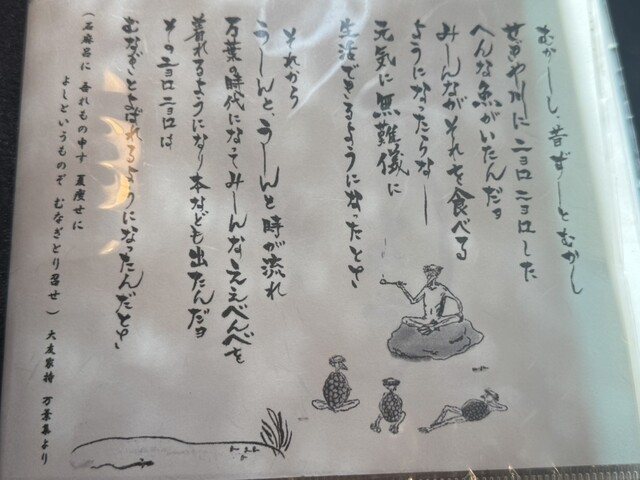 むかーし、昔ずーっとむかし
せきや川にニョロニョロした
へんな魚がいたんだョ
みーんながそれを食べる
ようになったらなー
元気に無難儀に
生活できるようになったとさ
それから
うーんと、うーんと時が流れ
万葉の時代になってみーんなええべんべを
着れるようになり本なども出たんだョ
そのニョロニョロは
むなぎとよばれるようになったんだとさ
(石麻呂に 吾れもの申す 夏痩せに
よしというものぞ むなぎとり召せ) 大友家持 万葉集より